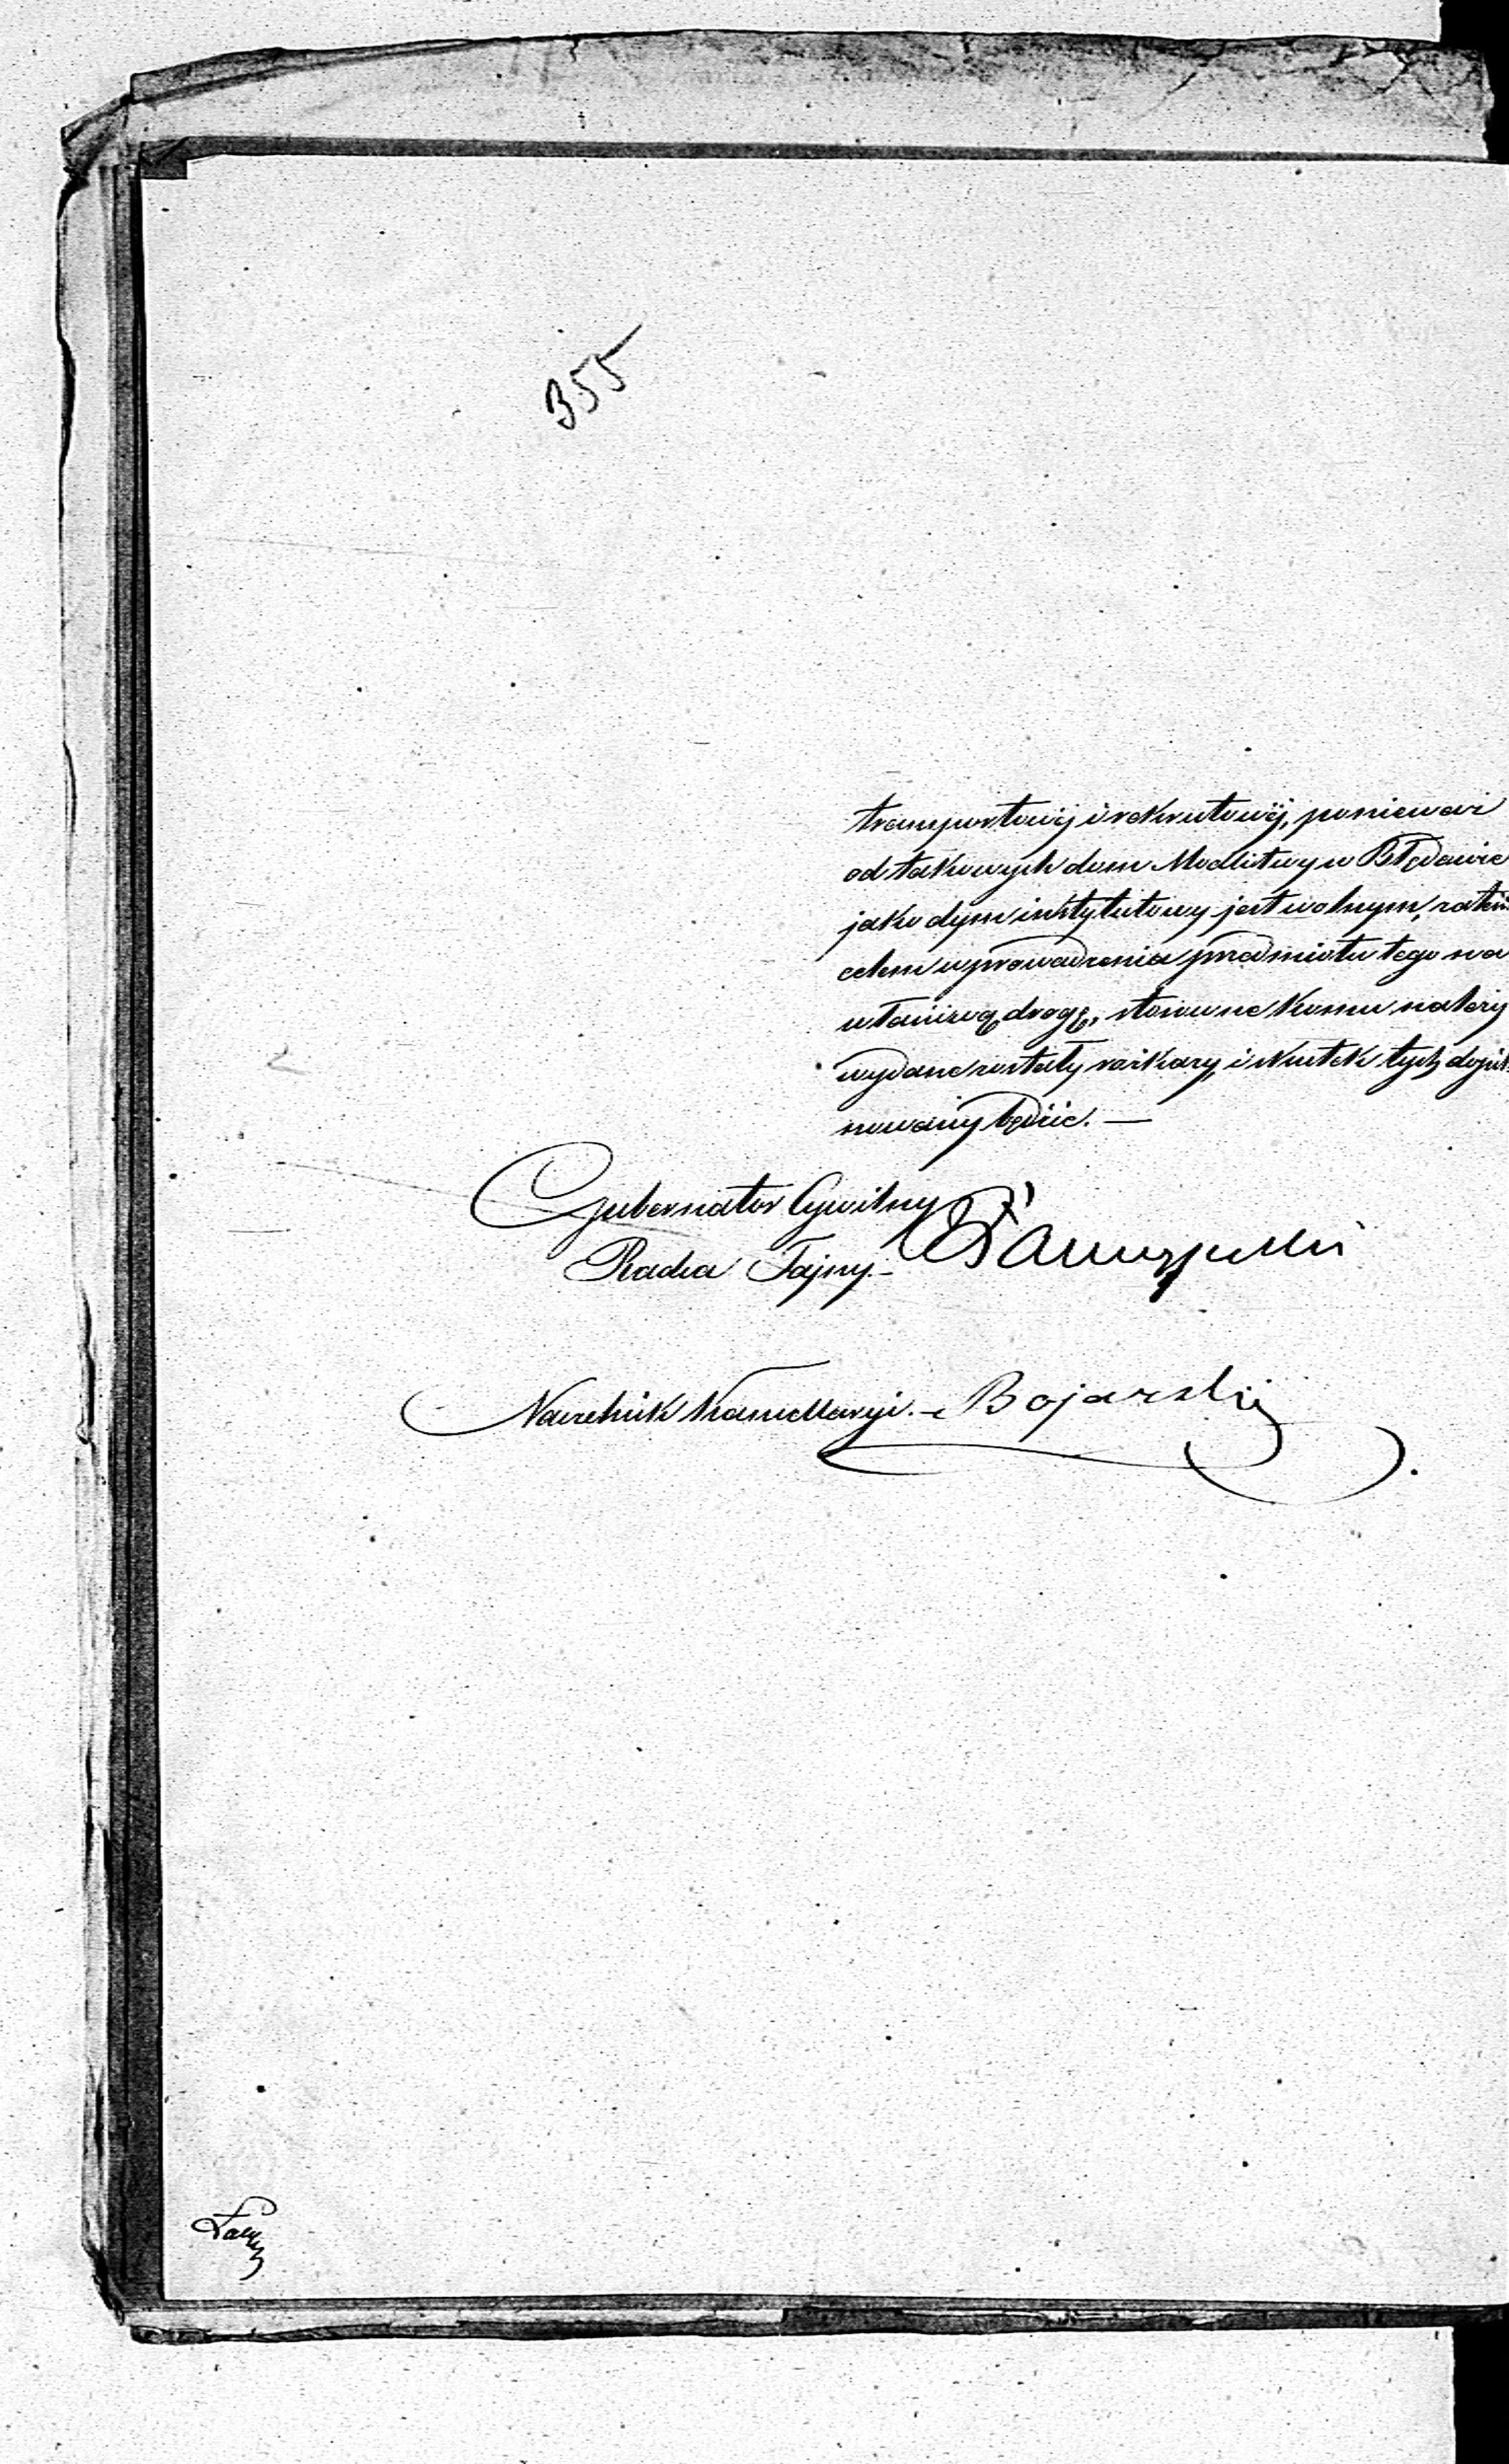 355
transportowéj i rekrutowéj, ponieważ
od takowych dom Modlitwy w Błędowie
jako dym instytutowy jest wolnym, zatém
celem wprowadzenia przedmiotu tego na
właściwą drogę, stosowne komu należy
wydane zostały rozkazy, i skutek tych dopil-
nowany będzie. —
Gubernator Cywilny
Radca Tajny. -
Naczelnik Kancellaryi. - Bojarskij